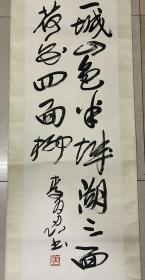 一城山色半城湖三面
荷花四面柳
书